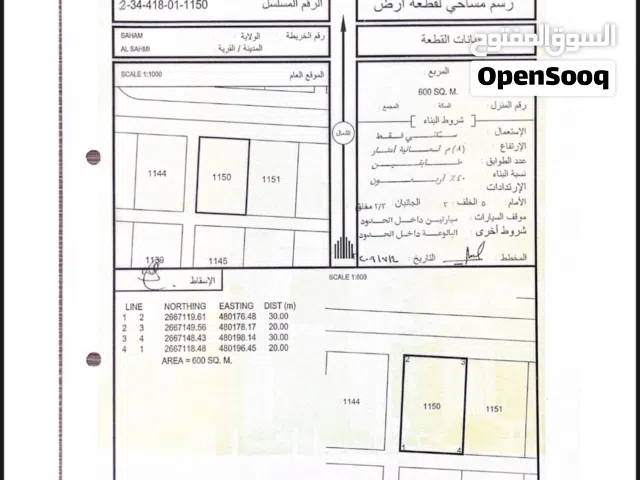 رسم مساحي لقطعة أرض
الرقم المسلسل 2-34-418-01-1150
السوق المفتوح
OpenSooq
بيانات القطعة
رقم الخريطة الولاية SAHAM
المدينة / القرية AL SAHMI
المربع
600 SQ. M.
رقم المنزل السكة المجمع
شروط البناء
الإستعمال سكني فقط
الإرتفاع (٨) م ثمانية أمتار
عدد الطوابق طابقين
نسبة البناء ٤٠٪ أربعون
الإرتدادات
الأمام ٥ الخلف ٣ الجانبان ٢/٣ مغلق
موقف السيارات سيارتين داخل الحدود
شروط أخرى البالوعة داخل الحدود
المخطط التاريخ
الشمال
SCALE 1:1000 الموقع العام
1144
1150
1151
1139
1145
الإسقاط
LINE NORTHING EASTING DIST (m)
1 2 2667119.61 480176.48 30.00
2 3 2667149.56 480178.17 20.00
3 4 2667148.43 480198.14 30.00
4 1 2667118.48 480196.45 20.00
AREA = 600 SQ. M.
SCALE 1:500
2 3
1144
1150
1151
1 4